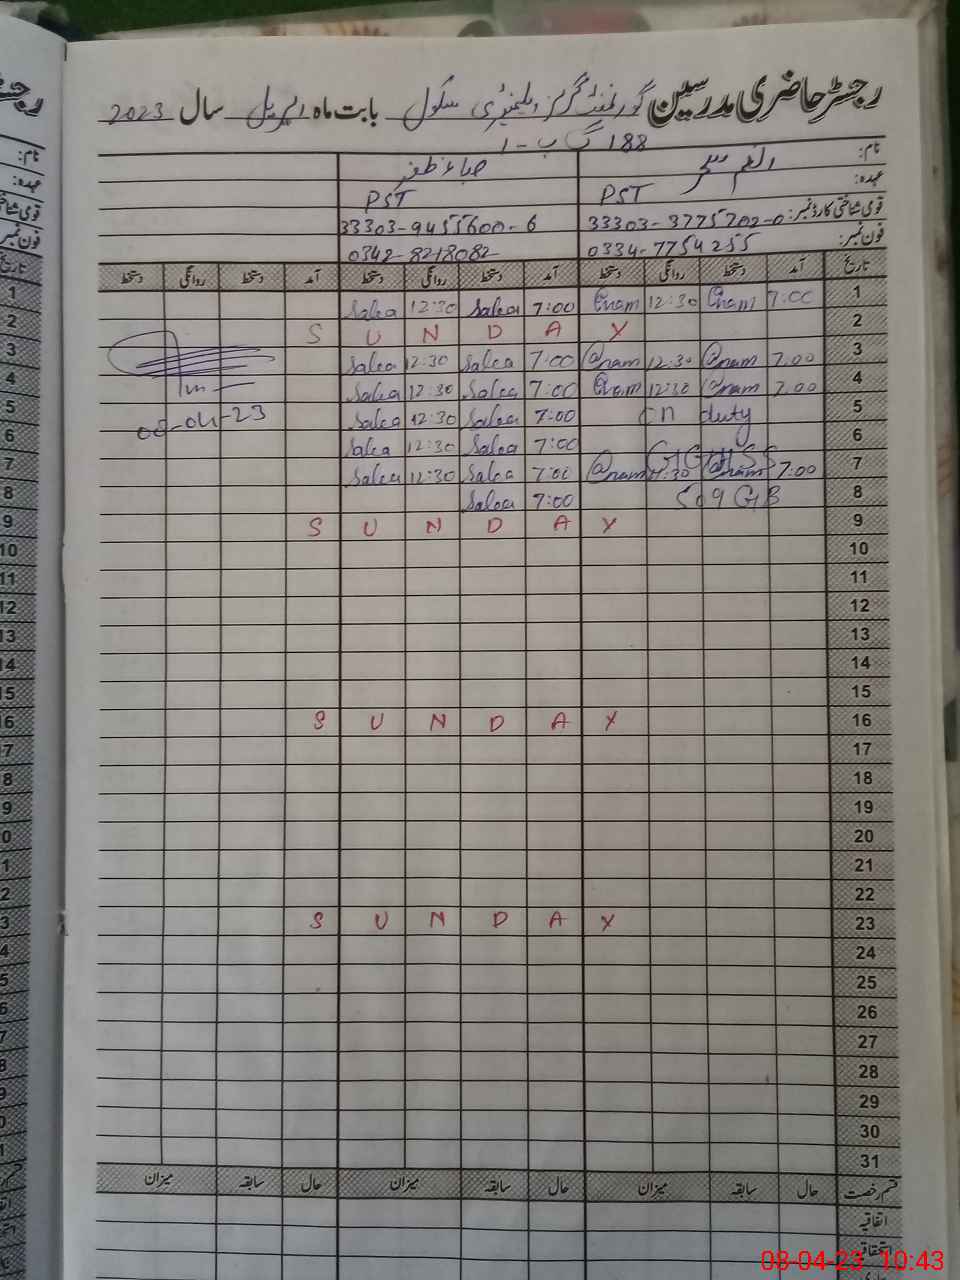 رجسٹر حاضری مدرسین گورنمنٹ گرلز ایلیمنٹری سکول بابت ماہ اپریل سال 2023
188 گ ب - 1
نام: انعم سحر صباء ظفر
عہدہ: PST PST
قومی شناختی کارڈ نمبر: 33303-3775702-0 33303-9455600-6
فون نمبر: 0334-7754255 0342-8218082
تاریخ آمد دستخط روانگی دستخط آمد دستخط روانگی دستخط آمد دستخط روانگی دستخط
1 7:00 Enam 12:30 Enam 7:00 12:30
2 S U N D A Y
3 7:00 12:30 7:00 12:30
4 7:00 12:30 7:00 12:30
5 on duty 7:00 12:30
6 7:00 12:30
7 7:00 7:00 12:30
8 509 GB 7:00
08-04-23
9 S U N D A Y
10
11
12
13
14
15
16 S U N D A Y
17
18
19
20
21
22
23 S U N D A Y
24
25
26
27
28
29
30
31
قسم رخصت حال سابقہ میزان حال سابقہ میزان حال سابقہ میزان
اتفاقیہ
استحقاقیہ
08-04-23 10:43